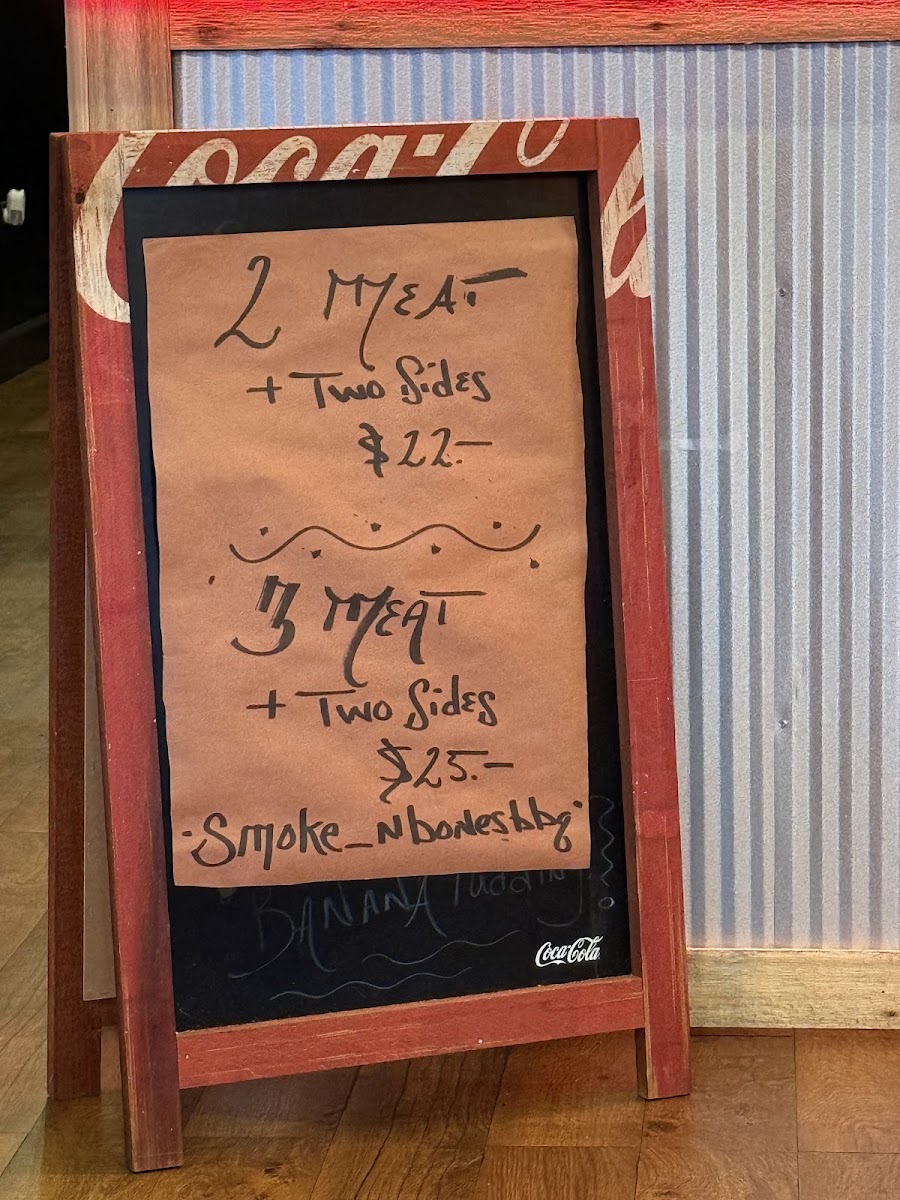 Coca-Co
2 MEAT
+ Two Sides
$22.-
3 MEAT
+ Two Sides
$25.-
Smoke_Nbonesbbq
BANANA Pudding
Coca-Cola